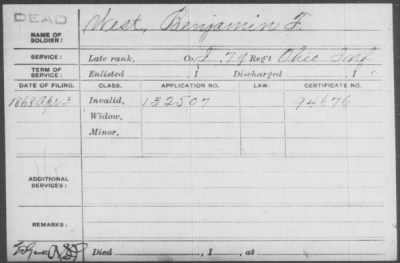 DEAD
NAME OF SOLDIER: West, Benjamin F.
SERVICE: Late rank, Co. I, 79 Reg't Ohio Inf
TERM OF SERVICE: Enlisted , 1 Discharged , 1
DATE OF FILING. CLASS. APPLICATION NO. LAW. CERTIFICATE NO.
1868 Apr 3 Invalid, 132507 94676
Widow,
Minor,
ADDITIONAL SERVICES:
REMARKS:
Died , 1 , at